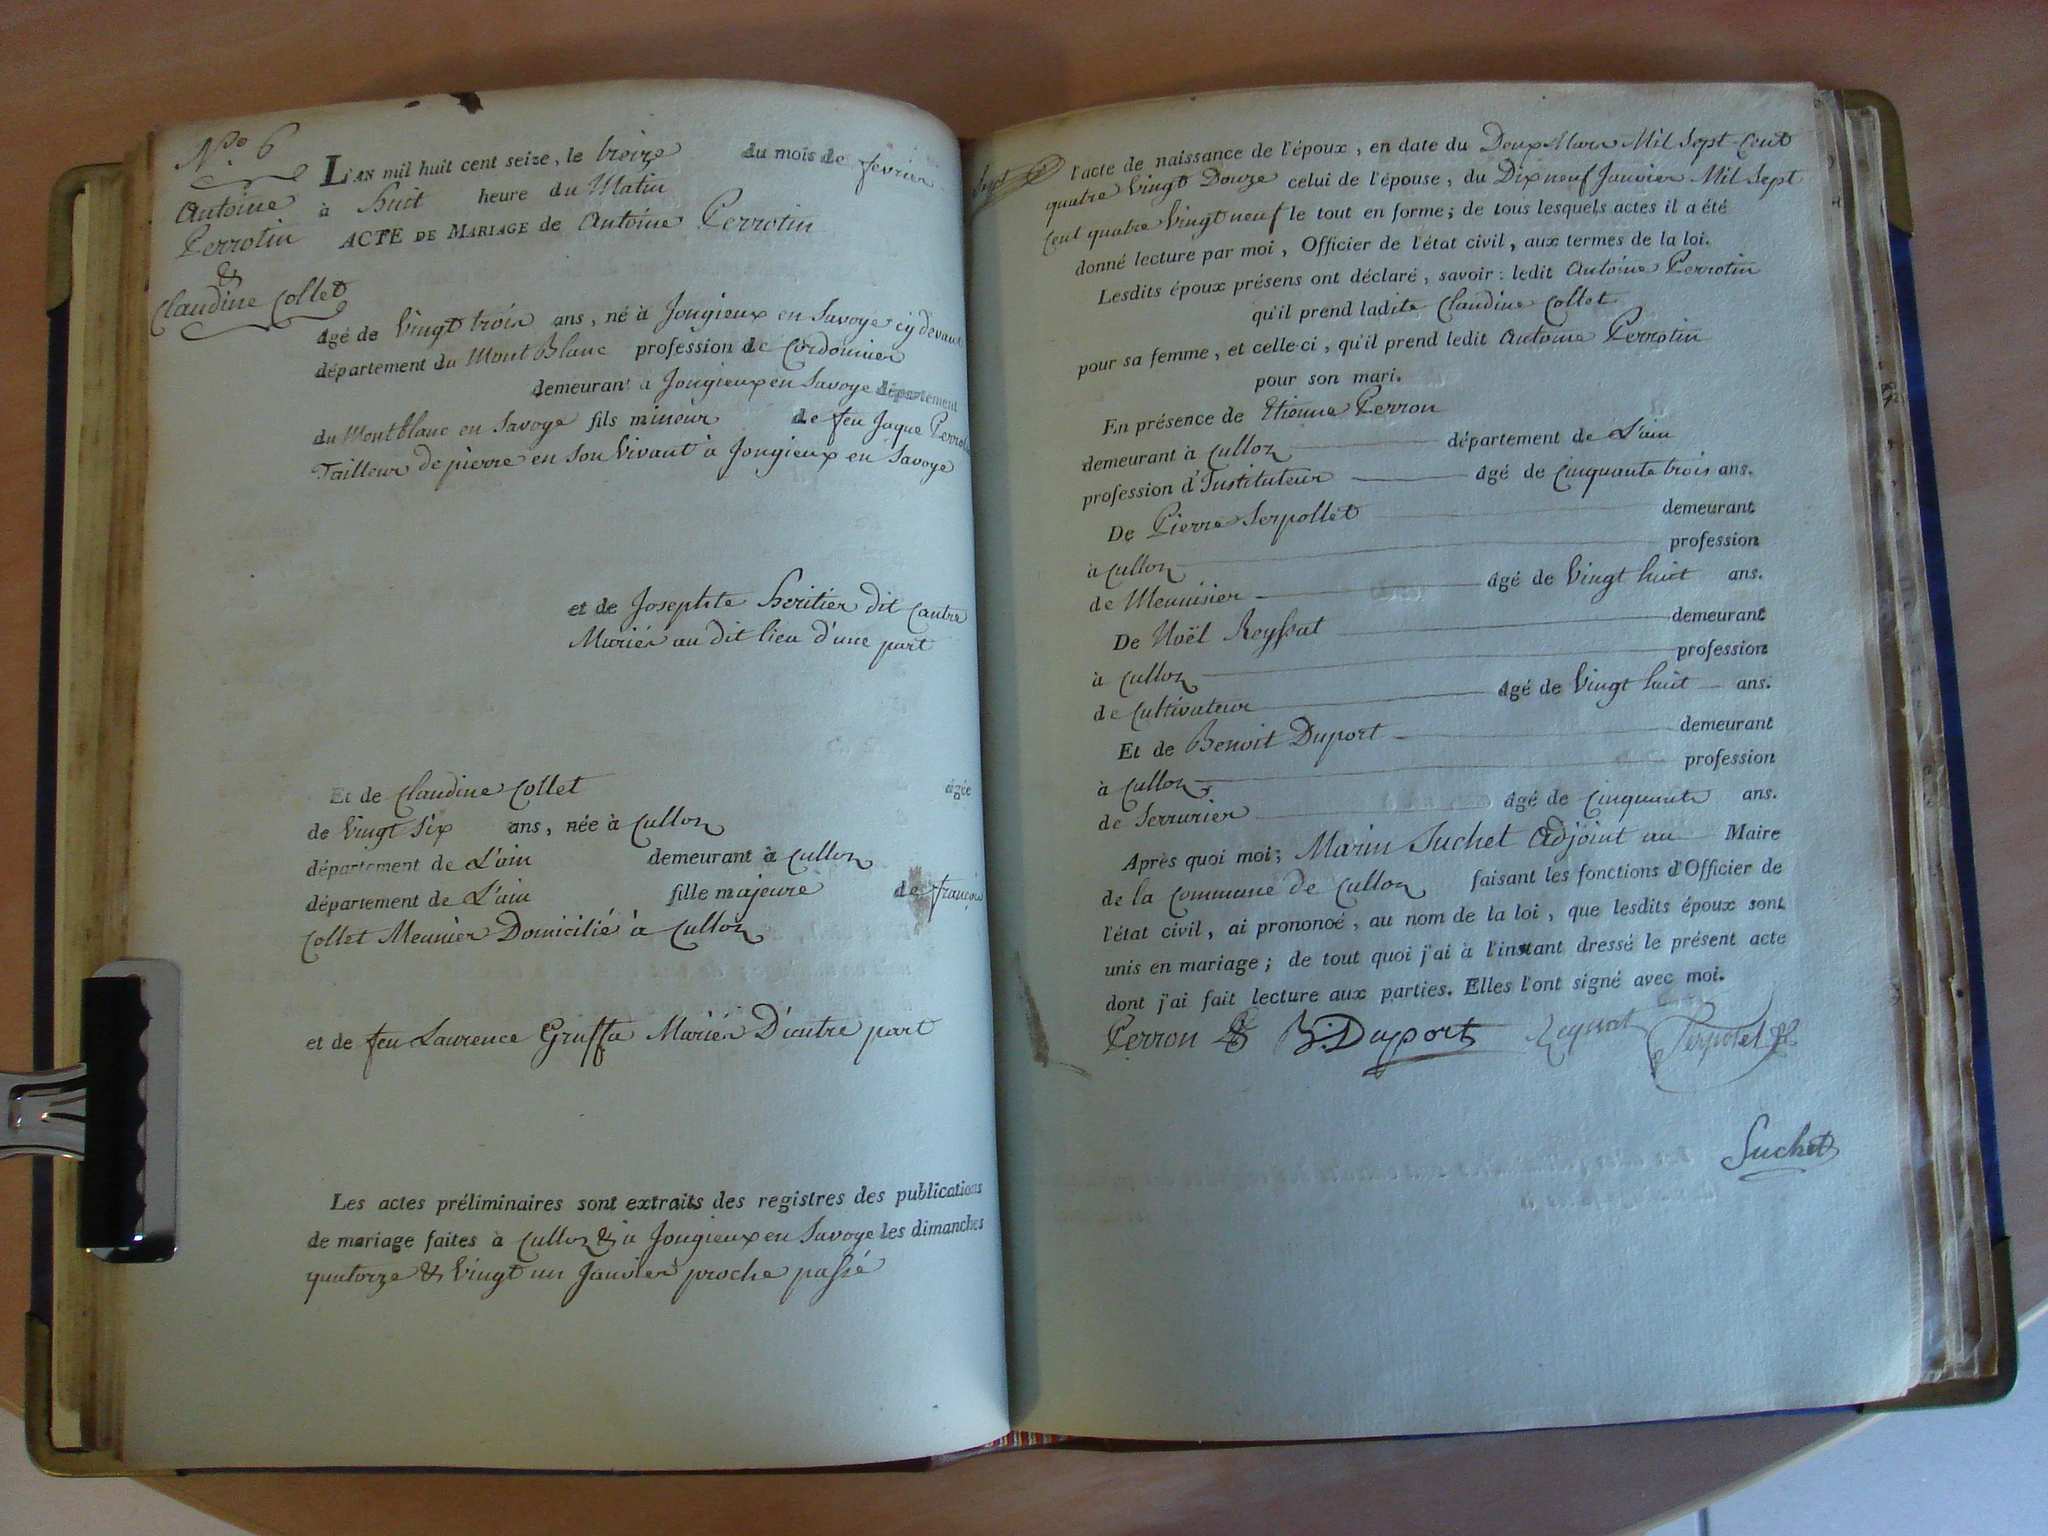 N.º 6
Antoine
Perrotin
&
Claudine Collet
L'AN mil huit cent seize, le treize du mois de fevrier
à huit heure du Matin
ACTE DE MARIAGE de Antoine Perrotin
agé de Vingt trois ans, né à Jongieux en Savoye cy devant
département du Mont Blanc profession de Cordonnier
demeurant à Jongieux en Savoye département
du Montblanc en Savoye fils mineur de feu Jaque
Tailleur de pierre en son Vivant à Jongieux en Savoye
et de Josephte heritier dit Cautre
Mariés au dit lieu d'une part
Et de Claudine Collet agée
de Vingt Six ans, née à Culloz
département de L'ain demeurant à Culloz
département de L'ain fille majeure de François
Collet Meunier Domicilié à Culloz
et de feu Laurence Gruffa Mariés D'autre part
Les actes préliminaires sont extraits des registres des publications
de mariage faites à Culloz & à Jongieux en Savoye les dimanches
quatorze & Vingt un Janvier proche passé
l'acte de naissance de l'époux, en date du Deux Mars Mil Sept Cent
quatre Vingt Douze celui de l'épouse, du Dix neuf Janvier Mil Sept
Cent quatre Vingt neuf le tout en forme; de tous lesquels actes il a été
donné lecture par moi, Officier de l'état civil, aux termes de la loi.
Lesdits époux présens ont déclaré, savoir: ledit Antoine Perrotin
qu'il prend ladite Claudine Collet
pour sa femme, et celle-ci, qu'il prend ledit Antoine Perrotin
pour son mari.
En présence de Etienne Perron
demeurant à Culloz département de L'ain
profession d'Instituteur agé de Cinquante trois ans.
De Pierre Serpollet demeurant
à Culloz profession
de Menuisier agé de Vingt huit ans.
De Noël Reyssat demeurant
à Culloz profession
de Cultivateur agé de Vingt huit ans.
Et de Benoit Duport demeurant
à Culloz profession
de Serrurier agé de Cinquante ans.
Après quoi moi, Marin Suchet Adjoint au Maire
de la Commune de Culloz faisant les fonctions d'Officier de
l'état civil, ai prononcé, au nom de la loi, que lesdits époux sont
unis en mariage; de tout quoi j'ai à l'instant dressé le présent acte
dont j'ai fait lecture aux parties. Elles l'ont signé avec moi.
Perron B. Duport Reyssat Serpollet
Suchet